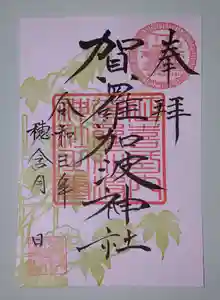 奉拝
賀羅加波神社
令和三年
穂含月 日